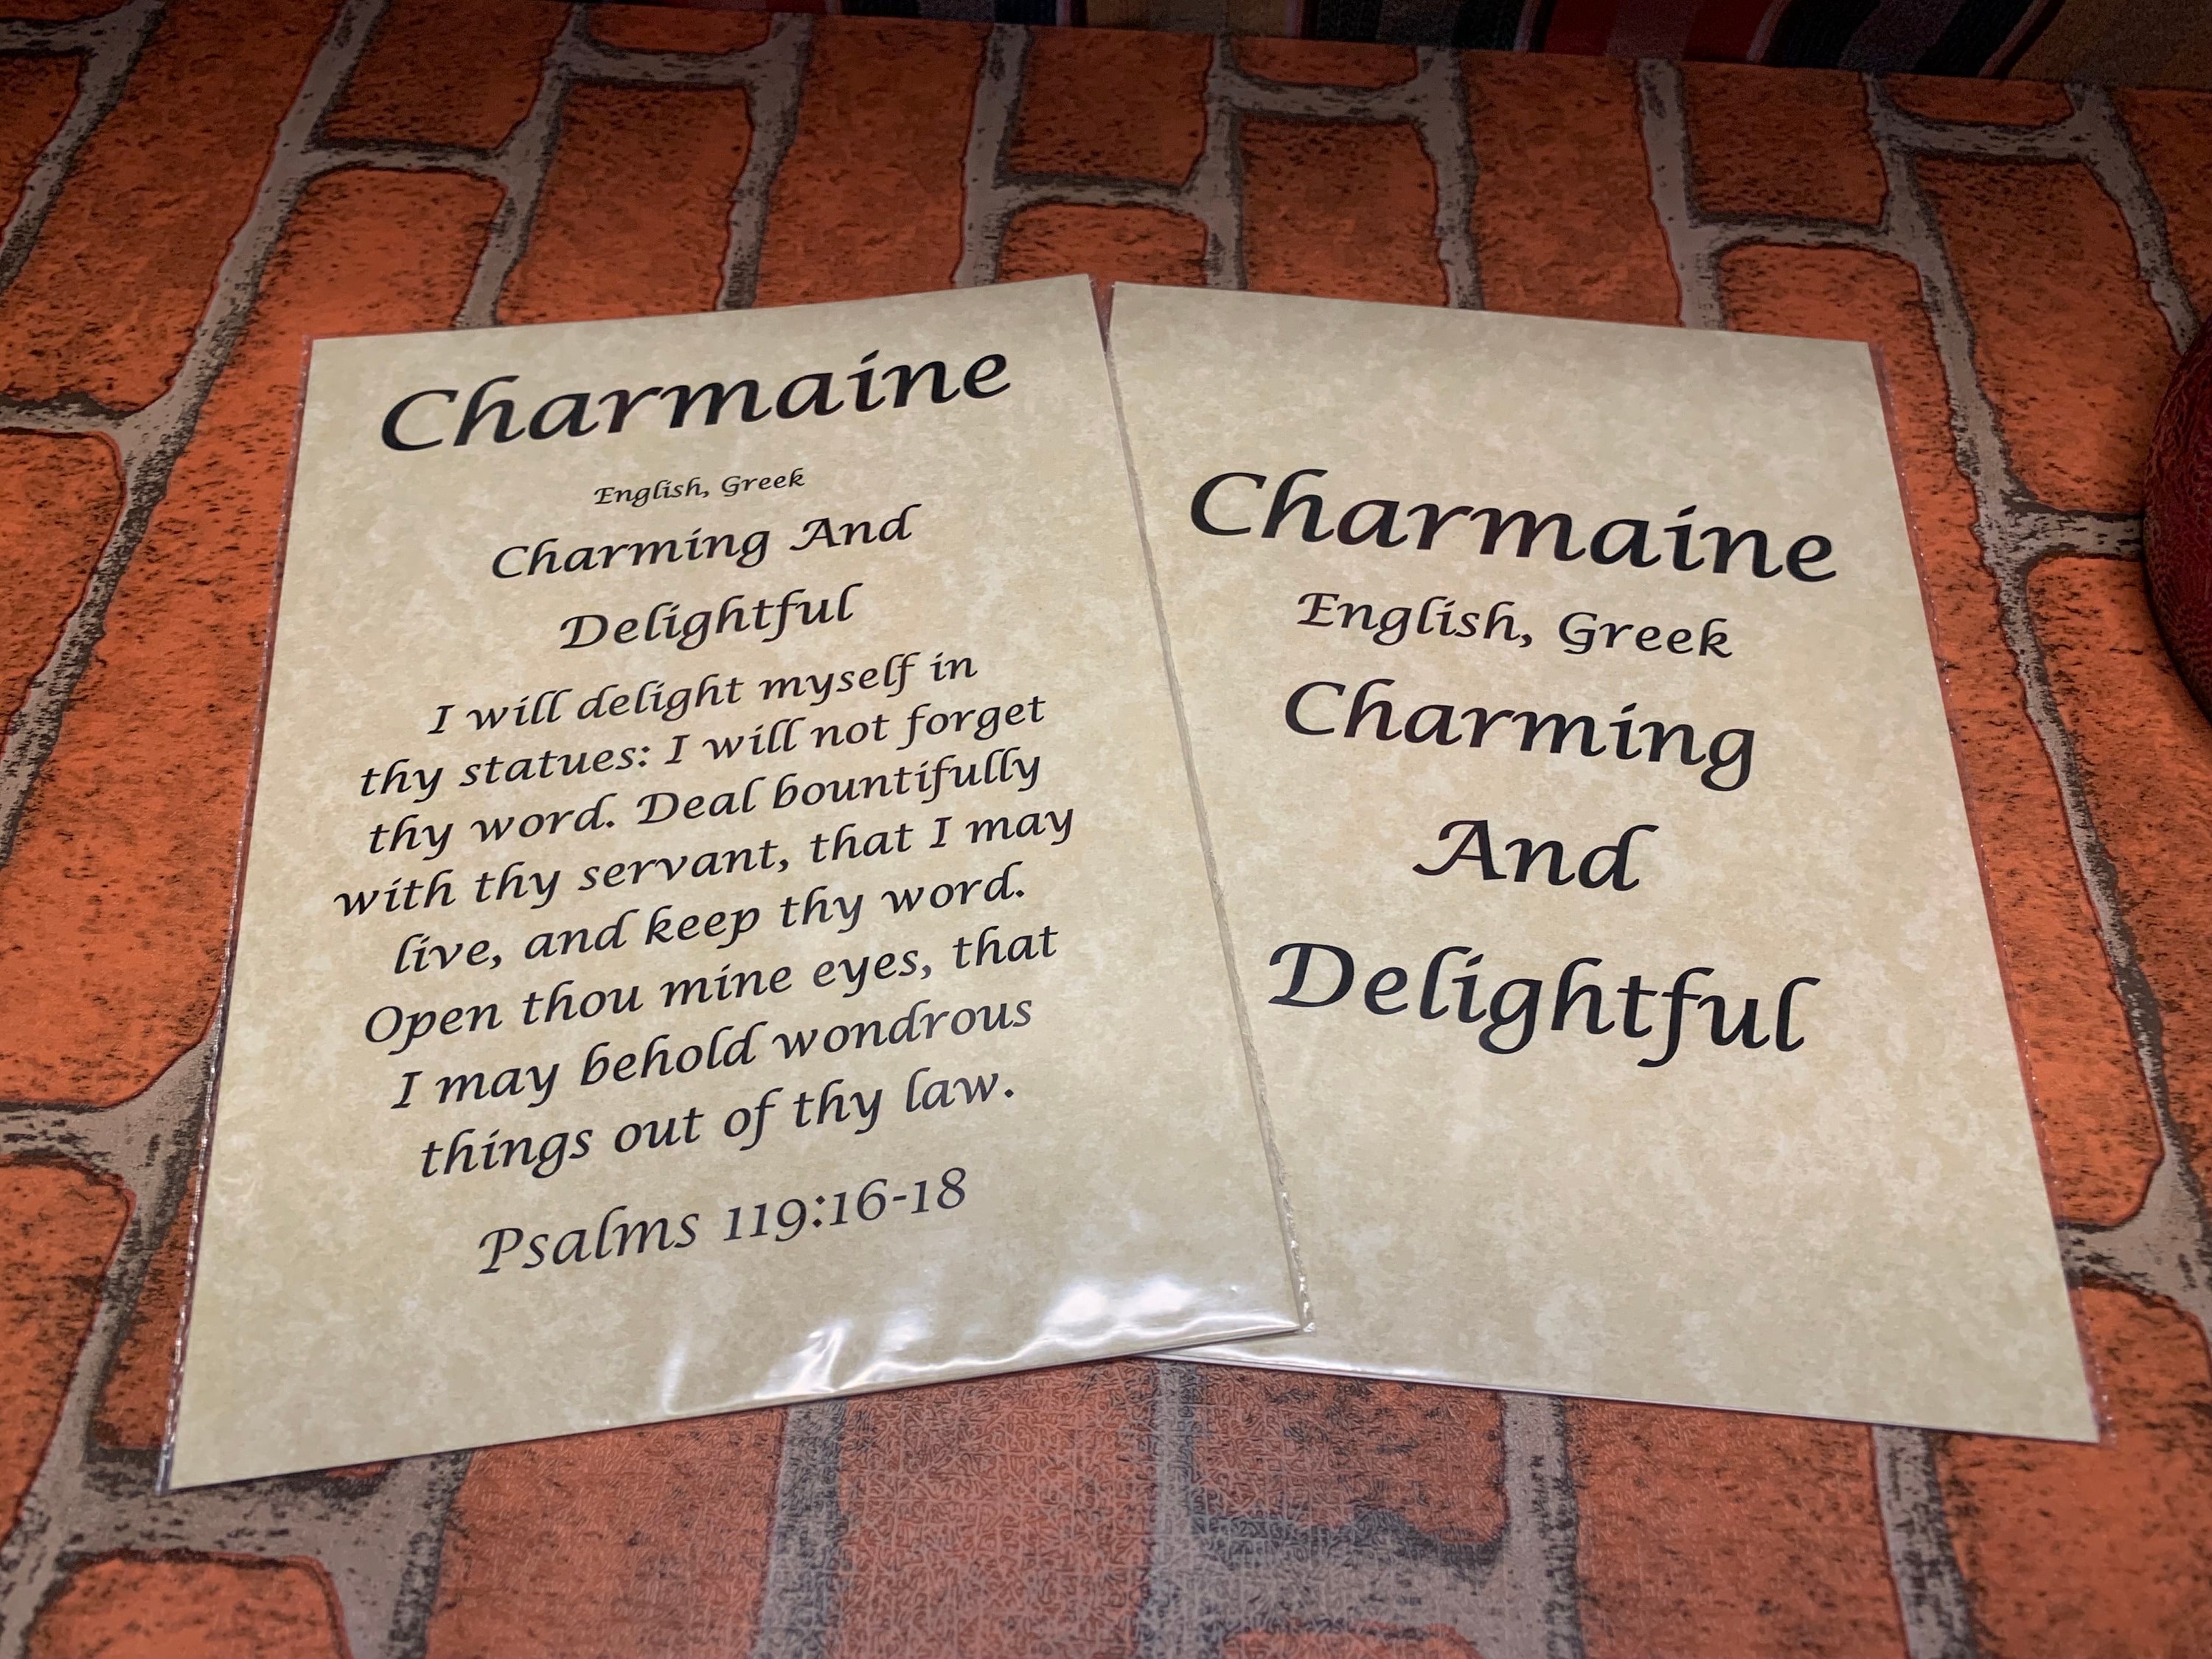 Charmaine
English, Greek
Charming And
Delightful
I will delight myself in
thy statues: I will not forget
thy word. Deal bountifully
with thy servant, that I may
live, and keep thy word.
Open thou mine eyes, that
I may behold wondrous
things out of thy law.
Psalms 119:16-18
Charmaine
English, Greek
Charming
And
Delightful